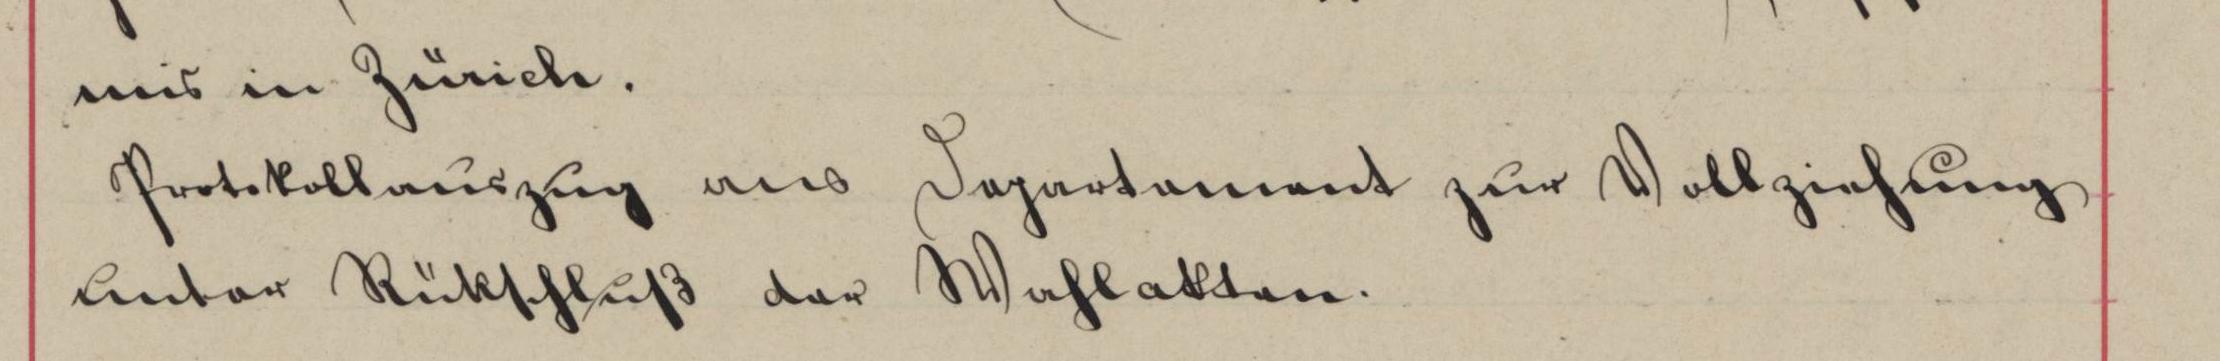 mis in Zürich.
Protokollauszug ans Departement zur Vollziehung
unter Rükschluß der Wahlakten.